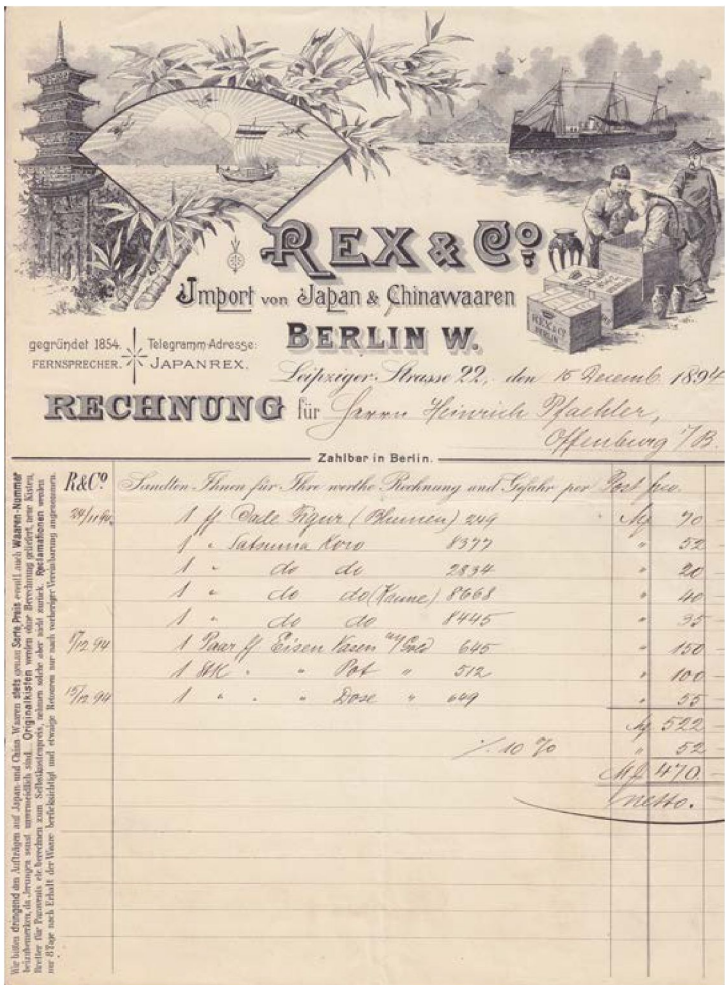 REX & Co.
Import von Japan & Chinawaaren
BERLIN W.
REX & Co
BERLIN
gegründet 1854.
FERNSPRECHER.
Telegramm-Adresse:
JAPANREX.
Leipziger-Strasse 22, den 15 Decemb. 1894
RECHNUNG für Herrn Heinrich Pfaehler,
Offenburg i/B.
Zahlbar in Berlin.
R&Co. Sandten Ihnen für Ihre werthe Rechnung und Gefahr per Post fco.
24/11 94 1 ff (Blumen) 249 M 70
1 " Satsuma Koro 8377 " 52
1 " do do 2834 " 20
1 " do do (Kanne) 8668 " 40
1 " do do 8445 " 35
1 Paar ff Eisen Vasen Gold 645 " 150
1 Stk " " Pot " 512 " 100
15/12 94 1 " " " Dose " 649 " 55
M 522
% 10 % " 52
M 470
netto.
Wir bitten dringend den Aufträgen auf Japan- und China-Waaren stets genau Serie, Preis eventl. auch Waaren-Nummer
beizubemerken, da Irrungen sonst unvermeidlich sind. Originalkisten werden ohne Berechnung geliefert, neue Kisten,
Bretter für Paravents etc berechnen zum Selbstkostenpreis, nehmen solche aber nicht zurück. Reclamationen werden
nur 8 Tage nach Erhalt der Waare berücksichtigt und etwaige Retouren nur nach vorheriger Vereinbarung angenommen.